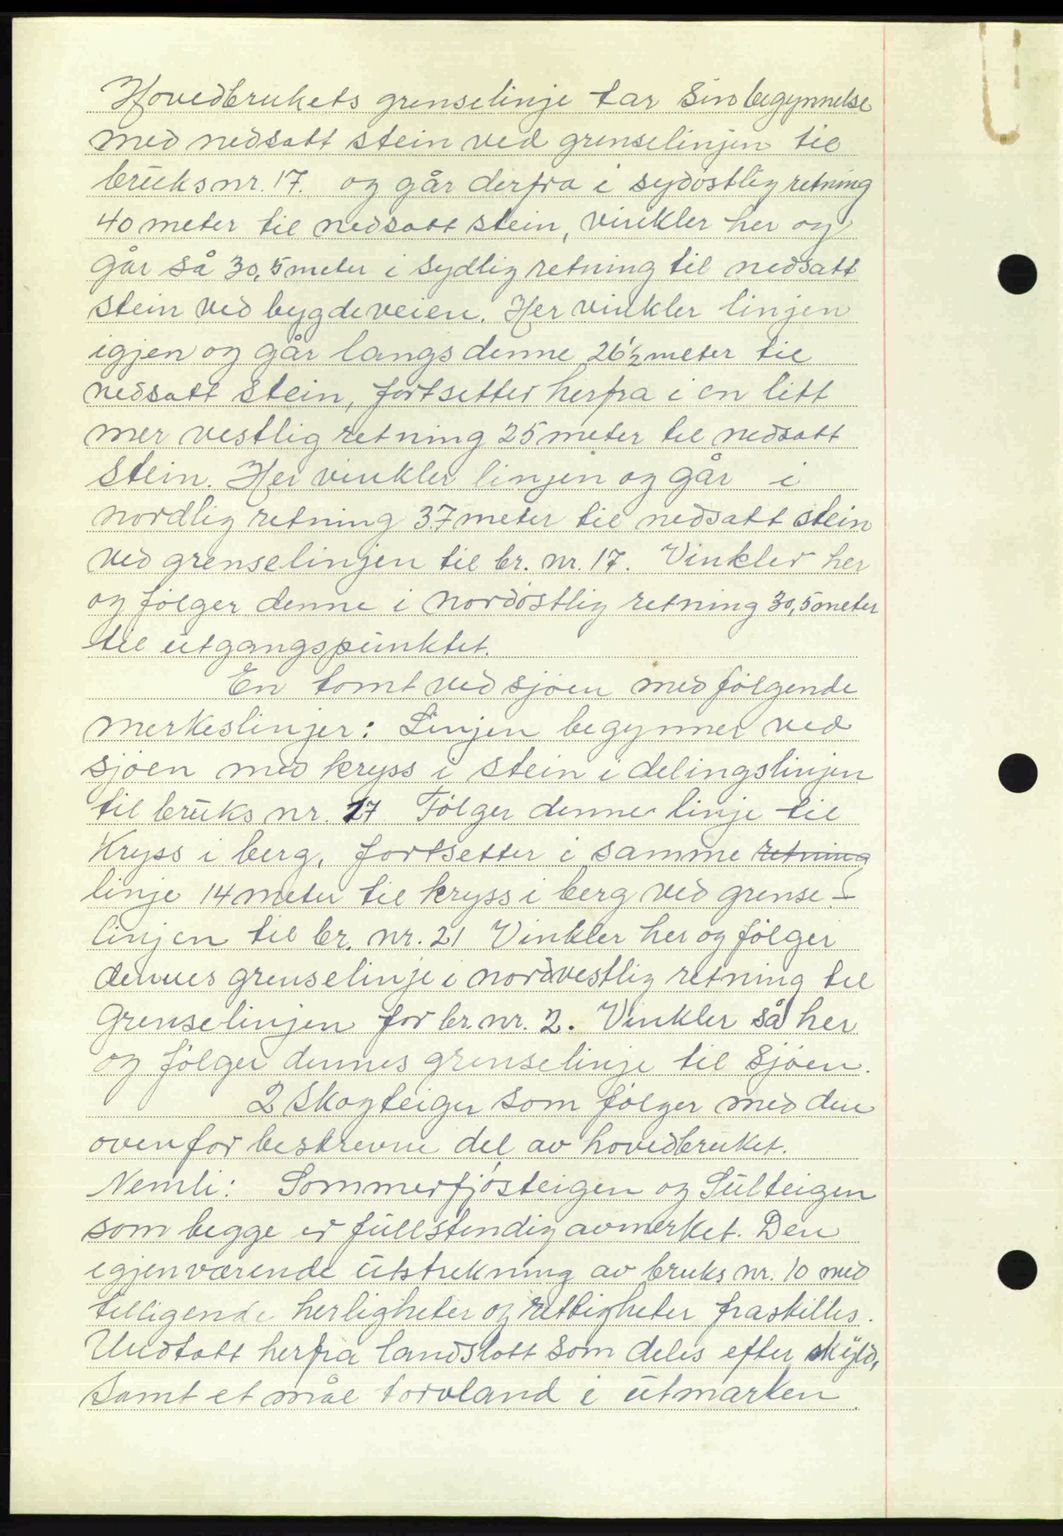 Hovedbrukets grenselinje tar sin begynnelse
med nedsatt stein ved grenselinjen til
bruks nr. 17. og går derfra i sydøstlig retning
40 meter til nedsatt stein, vinkler her og
går så 30,5 meter i sydlig retning til nedsatt
stein ved bygdeveien. Her vinkler linjen
igjen og går langs denne 26½ meter til
nedsatt stein, fortsetter herfra i en litt
mer vestlig retning 25 meter til nedsatt
stein. Her vinkler linjen og går i
nordlig retning 37 meter til nedsatt stein
ved grenselingen til br. nr. 17. Vinkler her
og følger denne i nordøstlig retning 30,5 meter
til utgangspunktet.
En tomt ved sjøen med følgende
merkeslinjer: Linjen begynner ved
sjøen med kryss i stein i delingslinjen
til bruks nr. 17 Følger denne linje til
Kryss i berg, fortsetter i samme retning
linje 14 meter til kryss i berg ved grense-
linjen til br. nr. 21 Vinkler her og følger
dennes grenselinje i nordvestlig retning til
Grenselinjen for br. nr. 2. Vinkler så her
og følger dennes grenselinje til sjøen.
2 skogteiger som følger med den
ovenfor beskrevne del av hovedbruket.
Nemli: Sommerfjøsteigen og Sulteigen
som begge er fullstendig avmerket. Den
igjenværende utstrekning av bruks nr. 10 med
tilligende herligheter og rettigheter fraskilles.
Undtatt herfra landslott som deles efter skyld,
Samt et mål torvland i utmarken.